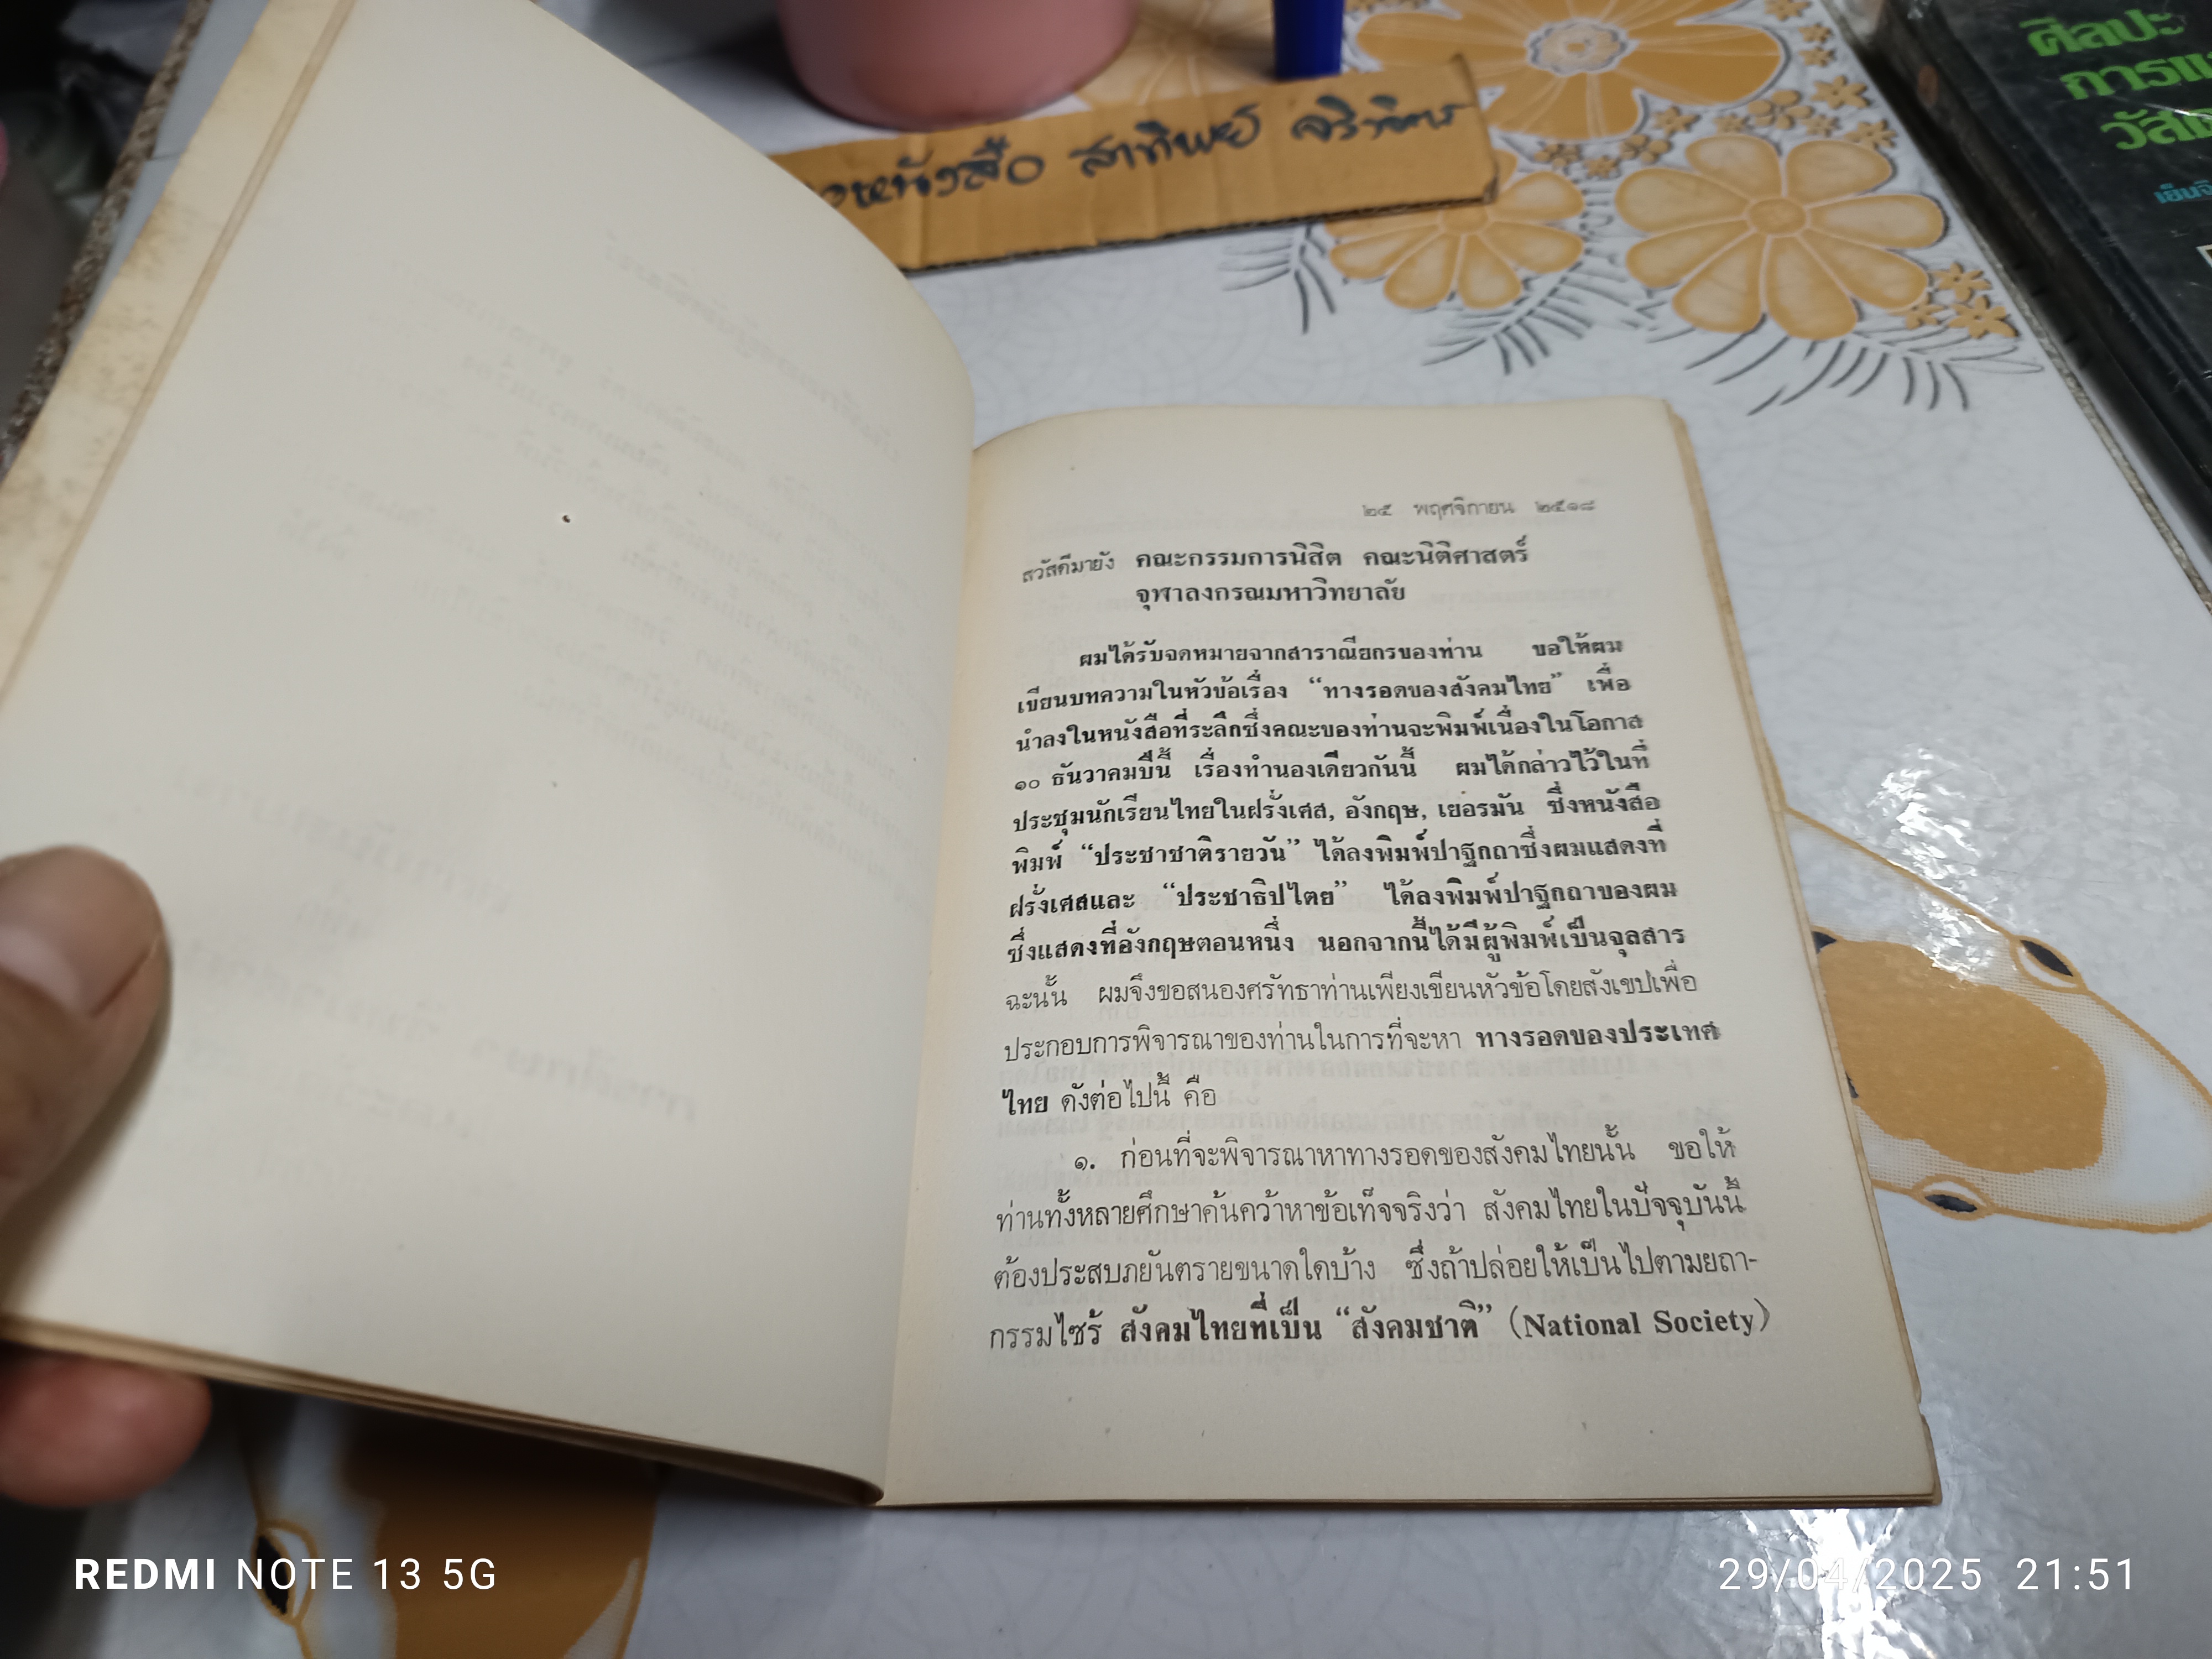 หนังสือ สาทิพย์
ศิลปะ
๒๕ พฤศจิกายน ๒๕๑๘
สวัสดีมายัง คณะกรรมการนิสิต คณะนิติศาสตร์
จุฬาลงกรณมหาวิทยาลัย
ผมได้รับจดหมายจากสาราณียกรของท่าน ขอให้ผม
เขียนบทความในหัวข้อเรื่อง “ทางรอดของสังคมไทย” เพื่อ
นำลงในหนังสือที่ระลึกซึ่งคณะของท่านจะพิมพ์เนื่องในโอกาส
๑๐ ธันวาคมปีนี้ เรื่องทำนองเดียวกันนี้ ผมได้กล่าวไว้ในที่
ประชุมนักเรียนไทยในฝรั่งเศส, อังกฤษ, เยอรมัน ซึ่งหนังสือ
พิมพ์ “ประชาชาติรายวัน” ได้ลงพิมพ์ปาฐกถาซึ่งผมแสดงที่
ฝรั่งเศสและ “ประชาธิปไตย” ได้ลงพิมพ์ปาฐกถาของผม
ซึ่งแสดงที่อังกฤษตอนหนึ่ง นอกจากนี้ได้มีผู้พิมพ์เป็นจุลสาร
ฉะนั้น ผมจึงขอสนองศรัทธาท่านเพียงเขียนหัวข้อโดยสังเขปเพื่อ
ประกอบการพิจารณาของท่านในการที่จะหา ทางรอดของประเทศ
ไทย ดังต่อไปนี้ คือ
๑. ก่อนที่จะพิจารณาหาทางรอดของสังคมไทยนั้น ขอให้
ท่านทั้งหลายศึกษาค้นคว้าหาข้อเท็จจริงว่า สังคมไทยในปัจจุบันนี้
ต้องประสบภยันตรายขนาดใดบ้าง ซึ่งถ้าปล่อยให้เป็นไปตามยถา-
กรรมไซร้ สังคมไทยที่เป็น “สังคมชาติ” (National Society)
REDMI NOTE 13 5G
29/04/2025 21:51